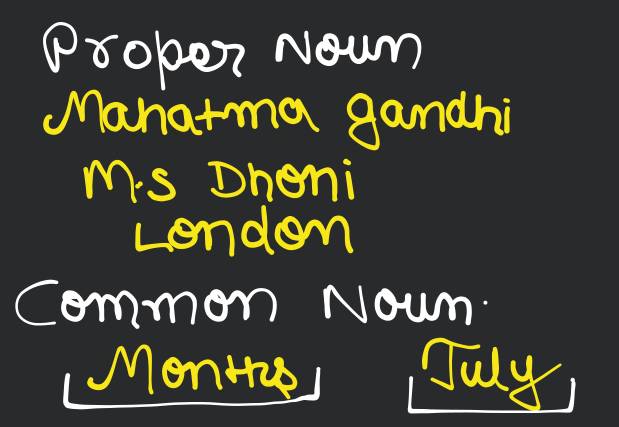 Proper Noun
Mahatma gandhi
M.s Dhoni
London
Common Noun.
Months July